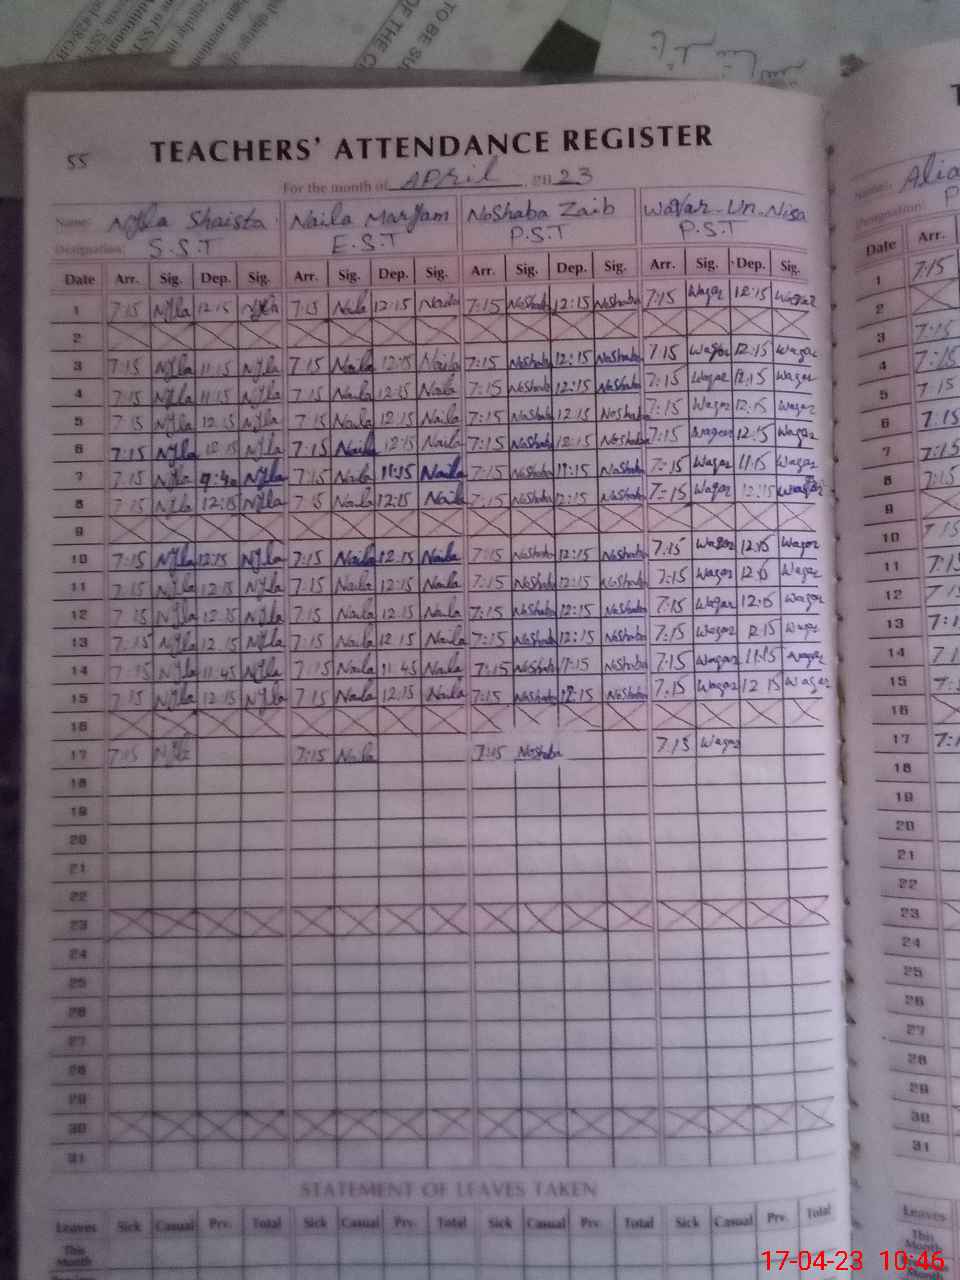 TO BE SU
OF THE C
55 TEACHERS' ATTENDANCE REGISTER
For the month of April, 2023
Name: Nyla Shaista Naila Maryam Noshaba Zaib Waqar-Un-Nisa
Designation: S.S.T E.S.T P.S.T P.S.T
Date Arr. Sig. Dep. Sig. Arr. Sig. Dep. Sig. Arr. Sig. Dep. Sig. Arr. Sig. Dep. Sig.
1 7:15 Nyla 12:15 Nyla 7:15 Naila 12:15 Naila 7:15 Noshaba 12:15 Noshaba 7:15 Waqar 12:15 Waqar
2
3 7:15 Nyla 11:15 Nyla 7:15 Naila 12:15 Naila 7:15 Noshaba 12:15 Noshaba 7:15 Waqar 12:15 Waqar
4 7:15 Nyla 11:15 Nyla 7:15 Naila 12:15 Naila 7:15 Noshaba 12:15 Noshaba 7:15 Waqar 12:15 Waqar
5 7:15 Nyla 12:15 Nyla 7:15 Naila 12:15 Naila 7:15 Noshaba 12:15 Noshaba 7:15 Waqar 12:15 Waqar
6 7:15 Nyla 12:15 Nyla 7:15 Naila 12:15 Naila 7:15 Noshaba 12:15 Noshaba 7:15 Waqar 12:15 Waqar
7 7:15 Nyla 9:40 Nyla 7:15 Naila 11:15 Naila 7:15 Noshaba 11:15 Noshaba 7:15 Waqar 11:15 Waqar
8 7:15 Nyla 12:15 Nyla 7:15 Naila 12:15 Naila 7:15 Noshaba 12:15 Noshaba 7:15 Waqar 12:15 Waqar
9
10 7:15 Nyla 12:15 Nyla 7:15 Naila 12:15 Naila 7:15 Noshaba 12:15 Noshaba 7:15 Waqar 12:15 Waqar
11 7:15 Nyla 12:15 Nyla 7:15 Naila 12:15 Naila 7:15 Noshaba 12:15 Noshaba 7:15 Waqar 12:15 Waqar
12 7:15 Nyla 12:15 Nyla 7:15 Naila 12:15 Naila 7:15 Noshaba 12:15 Noshaba 7:15 Waqar 12:15 Waqar
13 7:15 Nyla 12:15 Nyla 7:15 Naila 12:15 Naila 7:15 Noshaba 12:15 Noshaba 7:15 Waqar 12:15 Waqar
14 7:15 Nyla 11:45 Nyla 7:15 Naila 11:45 Naila 7:15 Noshaba 11:15 Noshaba 7:15 Waqar 11:15 Waqar
15 7:15 Nyla 12:15 Nyla 7:15 Naila 12:15 Naila 7:15 Noshaba 12:15 Noshaba 7:15 Waqar 12:15 Waqar
16
17 7:15 Nyla 7:15 Naila 7:15 Noshaba 7:15 Waqar
18
19
20
21
22
23
24
25
26
27
28
29
30
31
STATEMENT OF LEAVES TAKEN
Leaves Sick Casual Prv. Total Sick Casual Prv. Total Sick Casual Prv. Total Sick Casual Prv. Total
This
Month
Name: Alia
Designation: P
Date Arr.
1 7:15
2
3 7:15
4 7:15
5 7:15
6 7:15
7 7:15
8 7:15
9
10 7:15
11 7:15
12 7:15
13 7:1
14 7:1
15 7:
16
17 7:1
18
19
20
21
22
23
24
25
26
27
28
29
30
31
Leaves
This
Month
17-04-23 10:46